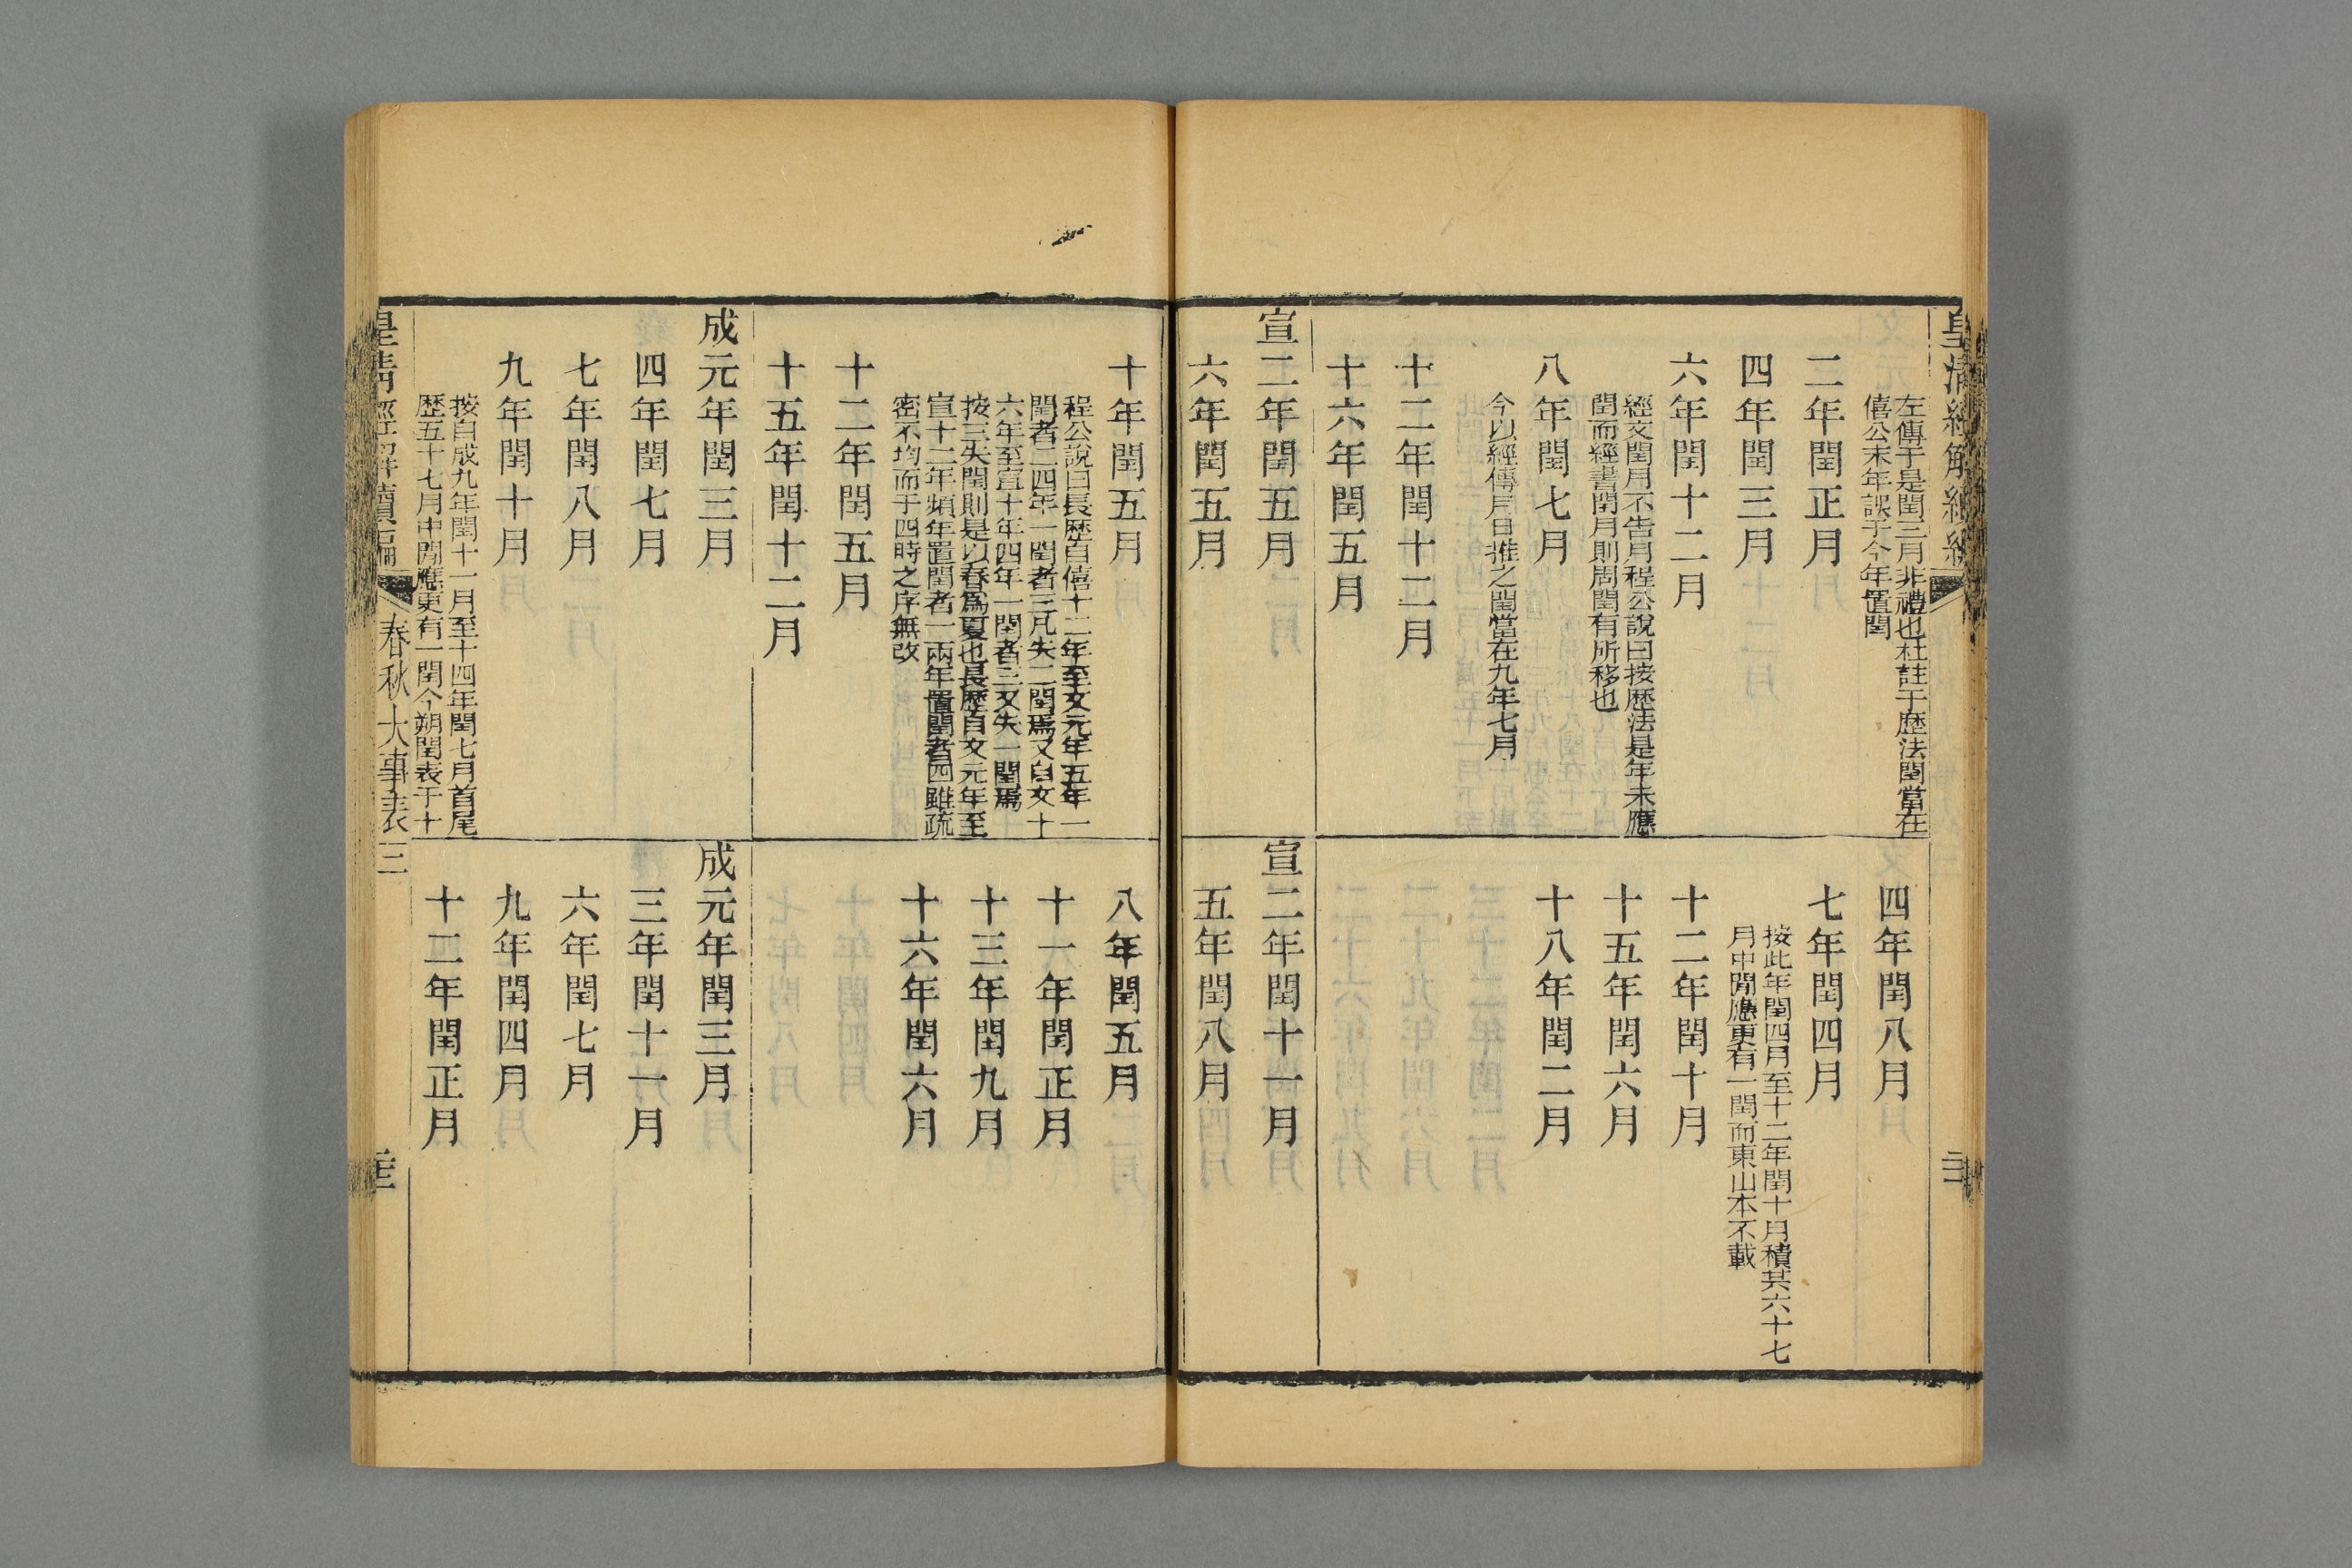 皇清經解續編
左傳于是閏三月非禮也杜註于歷法閏當在
僖公末年誤于今年置閏
二年閏正月
四年閏三月
六年閏十二月
經文閏月不告月程公說曰按歷法是年未應
閏而經書閏月則周閏有所移也
八年閏七月
今以經傳月日推之閏當在九年七月
十二年閏十二月
十六年閏五月
宣二年閏五月
六年閏五月
四年閏八月
七年閏四月
按此年閏四月至十二年閏十月積其六十七
月中閒應更有一閏而東山本不載
十二年閏十月
十五年閏六月
十八年閏二月
宣二年閏十一月
五年閏八月
十年閏五月
程公說曰長歷自僖十二年至文元年五年一
閏者二四年一閏者三凡失二閏焉又自文十
六年至宣十年四年一閏者三又失一閏焉
按三失閏則是以春爲夏也長歷自文元年至
宣十二年頻年置閏者一兩年置閏者四雖疏
密不均而于四時之序無改
十二年閏五月
十五年閏十二月
成元年閏三月
四年閏七月
七年閏八月
九年閏十月
按自成九年閏十一月至十四年閏七月首尾
歷五十七月中閒應更有一閏今朔閏表于十
八年閏五月
十一年閏正月
十三年閏九月
十六年閏六月
成元年閏三月
三年閏十一月
六年閏七月
九年閏四月
十二年閏正月
皇清經解續編
春秋大事表三